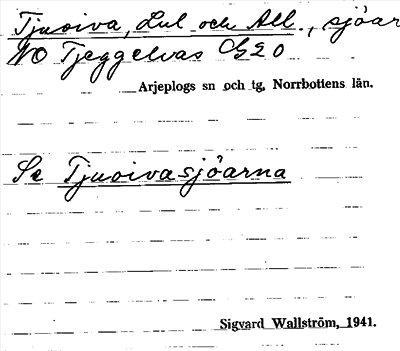 Tjuoiva, Lul och All., sjöar
NO Tjeggelvas G20
Arjeplogs sn och tg, Norrbottens län.
Se Tjuoivasjöarna
Sigvard Wallström, 1941.